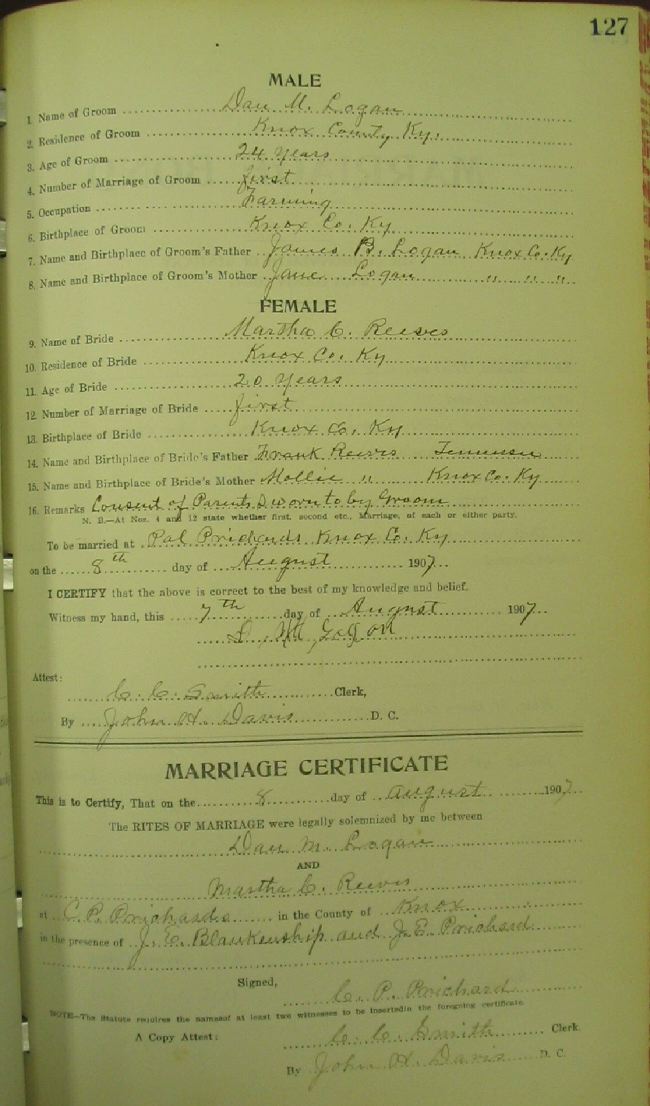 127
MALE
1. Name of Groom Dan M. Logan
2. Residence of Groom Knox County Ky.
3. Age of Groom 24 years
4. Number of Marriage of Groom first
5. Occupation Farming
6. Birthplace of Groom Knox Co. Ky
7. Name and Birthplace of Groom's Father James B. Logan Knox Co. Ky
8. Name and Birthplace of Groom's Mother Jane Logan " " "
FEMALE
9. Name of Bride Martha C. Reeves
10. Residence of Bride Knox Co. Ky
11. Age of Bride 20 years
12. Number of Marriage of Bride first
13. Birthplace of Bride Knox Co. Ky
14. Name and Birthplace of Bride's Father Frank Reeves
15. Name and Birthplace of Bride's Mother Mollie " Knox Co. Ky
16. Remarks Consent of Parents Sworn to by Groom
N. B.—At Nos. 4 and 12 state whether first, second etc., Marriage, of each or either party.
To be married at Knox Co. Ky
on the 8th day of August 1907
I CERTIFY that the above is correct to the best of my knowledge and belief.
Witness my hand, this 7th day of August 1907
D. M.
Attest:
C. C. Smith Clerk,
By John H. Davis D. C.
MARRIAGE CERTIFICATE
This is to Certify, That on the 8 day of august 1907
The RITES OF MARRIAGE were legally solemnized by me between
Dan M. Logan
AND
Martha C. Reeves
at C. P. Prichards in the County of Knox
in the presence of J. E. Blankenship and J. E. Prichard
Signed,
C. P. Prichard
NOTE—The Statute requires the names of at least two witnesses to be inserted in the foregoing certificate.
A Copy Attest: C. C. Smith Clerk
By John H. Davis D. C.